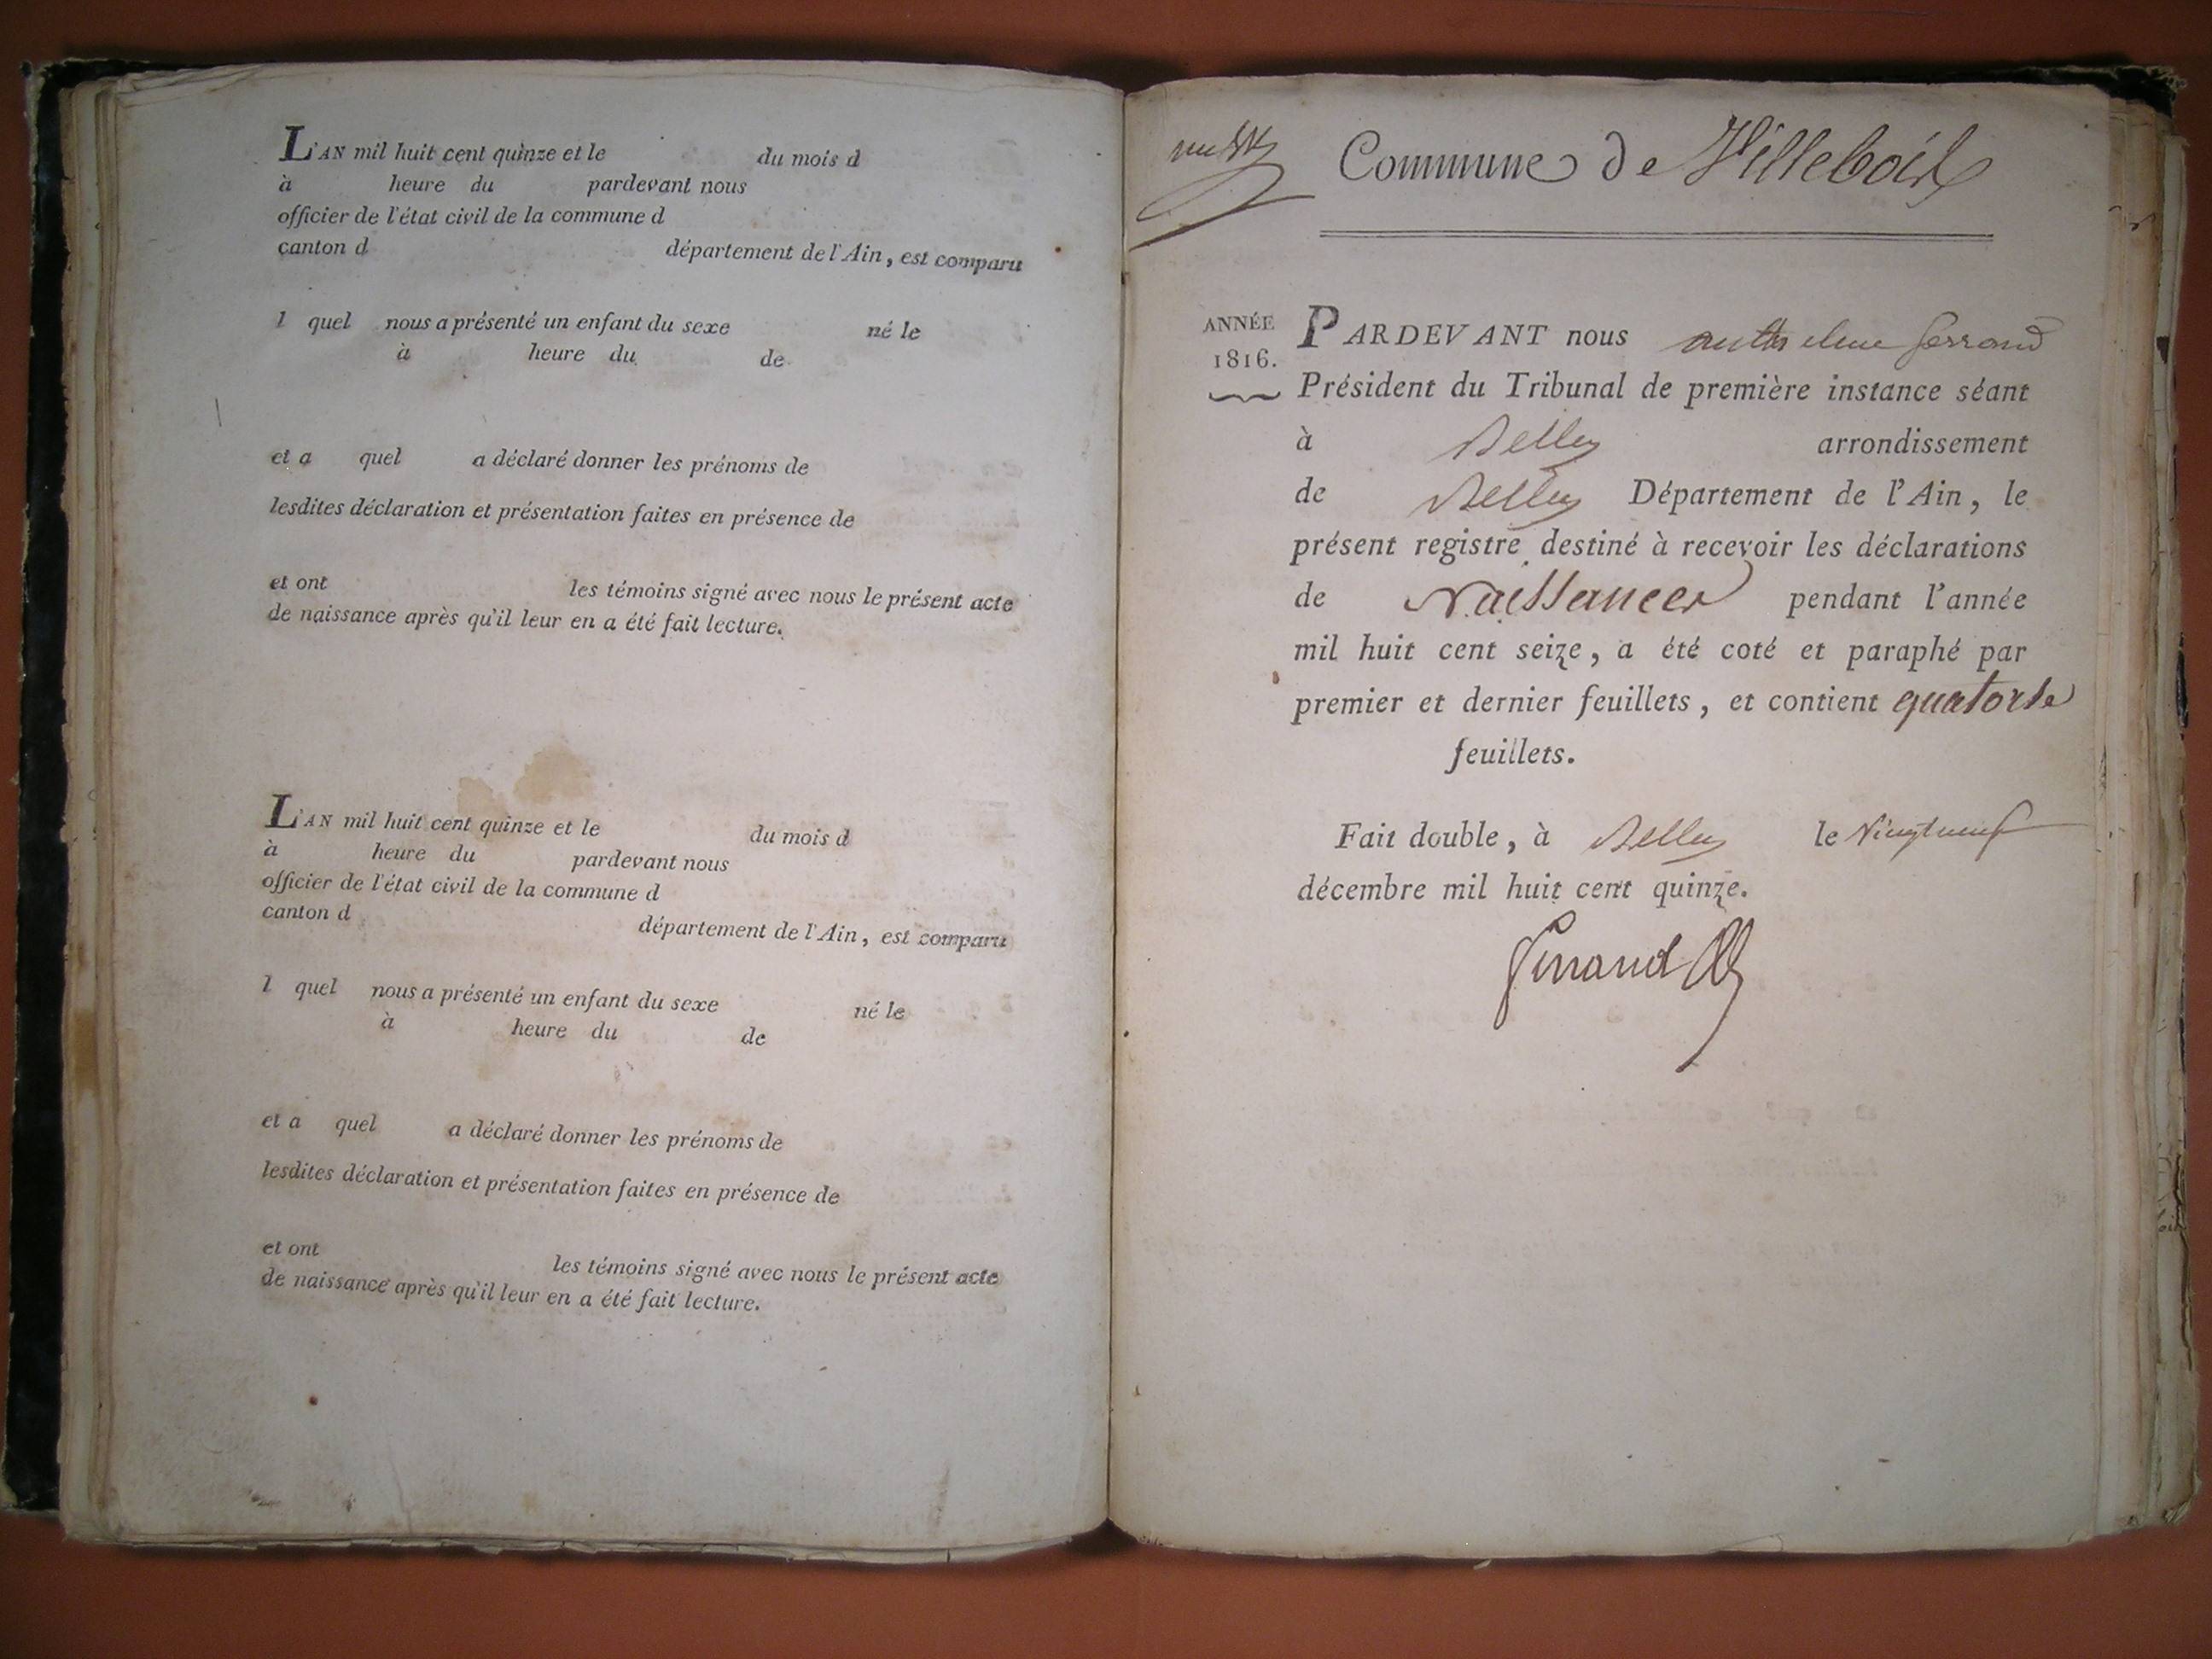 L'AN mil huit cent quinze et le du mois d
à heure du pardevant nous
officier de l'état civil de la commune d
canton d département de l'Ain, est comparu
l quel nous a présenté un enfant du sexe né le
à heure du de
et a quel a déclaré donner les prénoms de
lesdites déclaration et présentation faites en présence de
et ont les témoins signé avec nous le présent acte
de naissance après qu'il leur en a été fait lecture.
L'AN mil huit cent quinze et le du mois d
à heure du pardevant nous
officier de l'état civil de la commune d
canton d département de l'Ain, est comparu
l quel nous a présenté un enfant du sexe né le
à heure du de
et a quel a déclaré donner les prénoms de
lesdites déclaration et présentation faites en présence de
et ont les témoins signé avec nous le présent acte
de naissance après qu'il leur en a été fait lecture.
Commune de Villebois
ANNÉE
1816.
PARDEVANT nous anthelme ferrand
Président du Tribunal de première instance séant
à Belley arrondissement
de Belley Département de l'Ain, le
présent registre destiné à recevoir les déclarations
de Naissances pendant l'année
mil huit cent seize, a été coté et paraphé par
premier et dernier feuillets, et contient quatorze
feuillets.
Fait double, à Belley le vingt neuf
décembre mil huit cent quinze.
ferrand